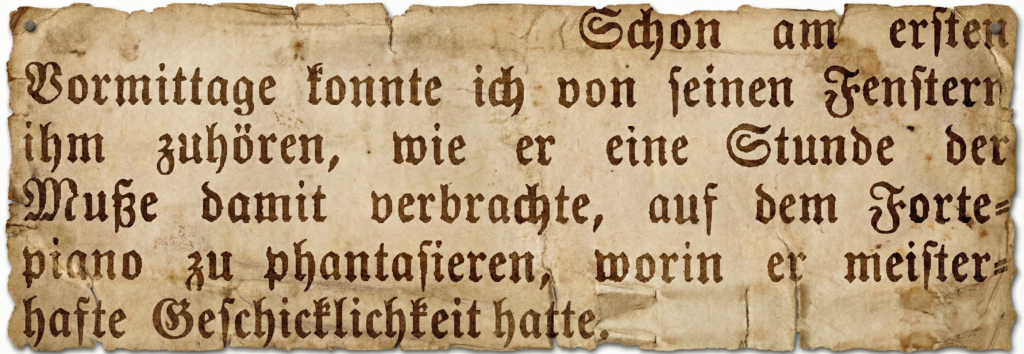 Schon am ersten
Vormittage konnte ich von seinen Fenstern
ihm zuhören, wie er eine Stunde der
Muße damit verbrachte, auf dem Forte-
piano zu phantasieren, worin er meister-
hafte Geschicklichkeit hatte.